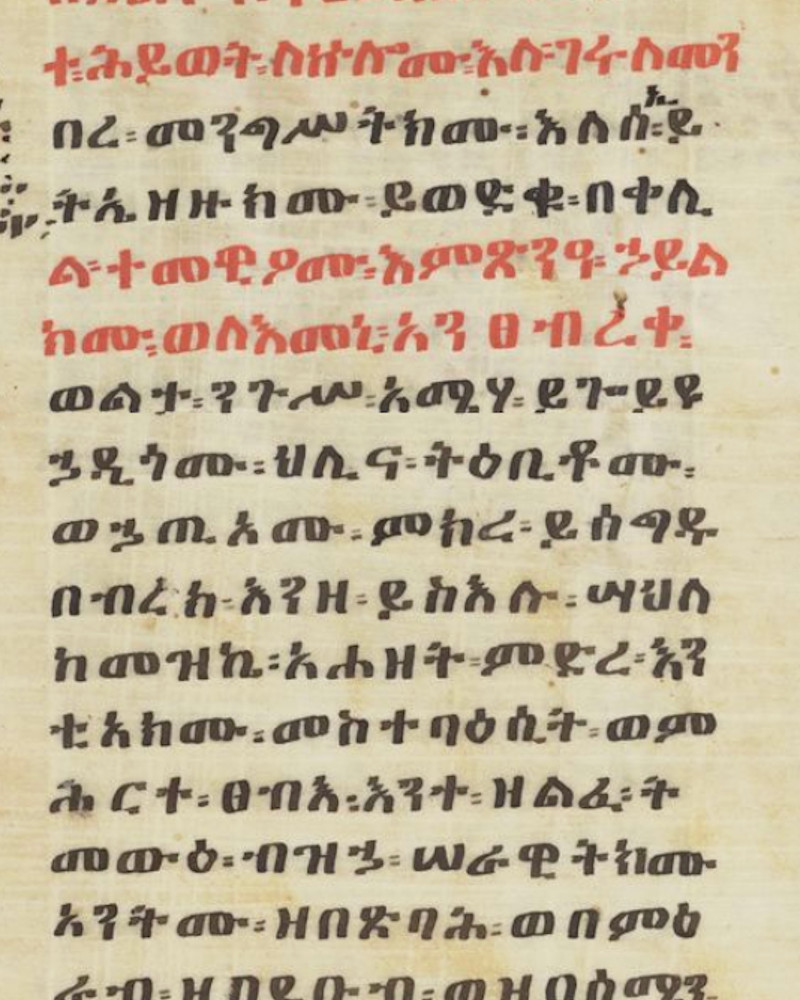 ተ፡ሕይወት፡ለዘሎሙ፡እለ፡ገሩ፡ለመን
በረ፡መንግሥትክሙ፡እለ፡ይ
ትኤዝዙክሙ፡ይወድቁ፡በቀሊ
ል፡ተመዊዖሙ፡እምጽንዓ፡ኃይል
ክሙ፡ወለእመኒ፡አንፀብረቀ፡
ወልታ፡ንጉሥ፡አሜሃ፡ይጐይዩ
ኃዲጎሙ፡ህሊና፡ትዕቢቶሙ፡
ወኃጢአሙ፡ምክረ፡ይሰግዱ
በብረከ፡እንዘ፡ይስእሉ፡ሣህለ
ከመዝኬ፡አሐዘት፡ምድረ፡እን
ቲአክሙ፡መስተባዕሲት፡ወም
ሕርተ፡ፀብእ፡እንተ፡ዘልፈ፡ት
መውዕ፡ብዝኃ፡ሠራዊትክሙ
አንትሙ፡ዘበጽባሕ፡ወበምዕ